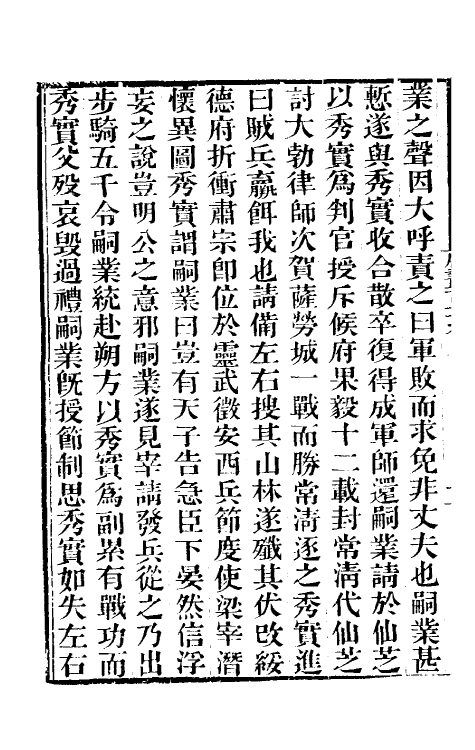 業之聲因大呼責之曰軍敗而求免非丈夫也嗣業甚
慙遂與秀實收合散卒復得成軍師還嗣業請於仙芝
以秀實爲判官授斥候府果毅十二載封常淸代仙芝
討大勃律師次賀薩勞城一戰而勝常淸逐之秀實進
曰賊兵羸餌我也請備左右搜其山林遂殲其伏改綏
德府折衝肅宗卽位於靈武徵安西兵節度使梁宰潛
懷異圖秀實謂嗣業曰豈有天子告急臣下晏然信浮
妄之說豈明公之意邪嗣業遂見宰請發兵從之乃出
步騎五千令嗣業統赴朔方以秀實爲副累有戰功而
秀實父歿哀毀過禮嗣業旣授節制思秀實如失左右